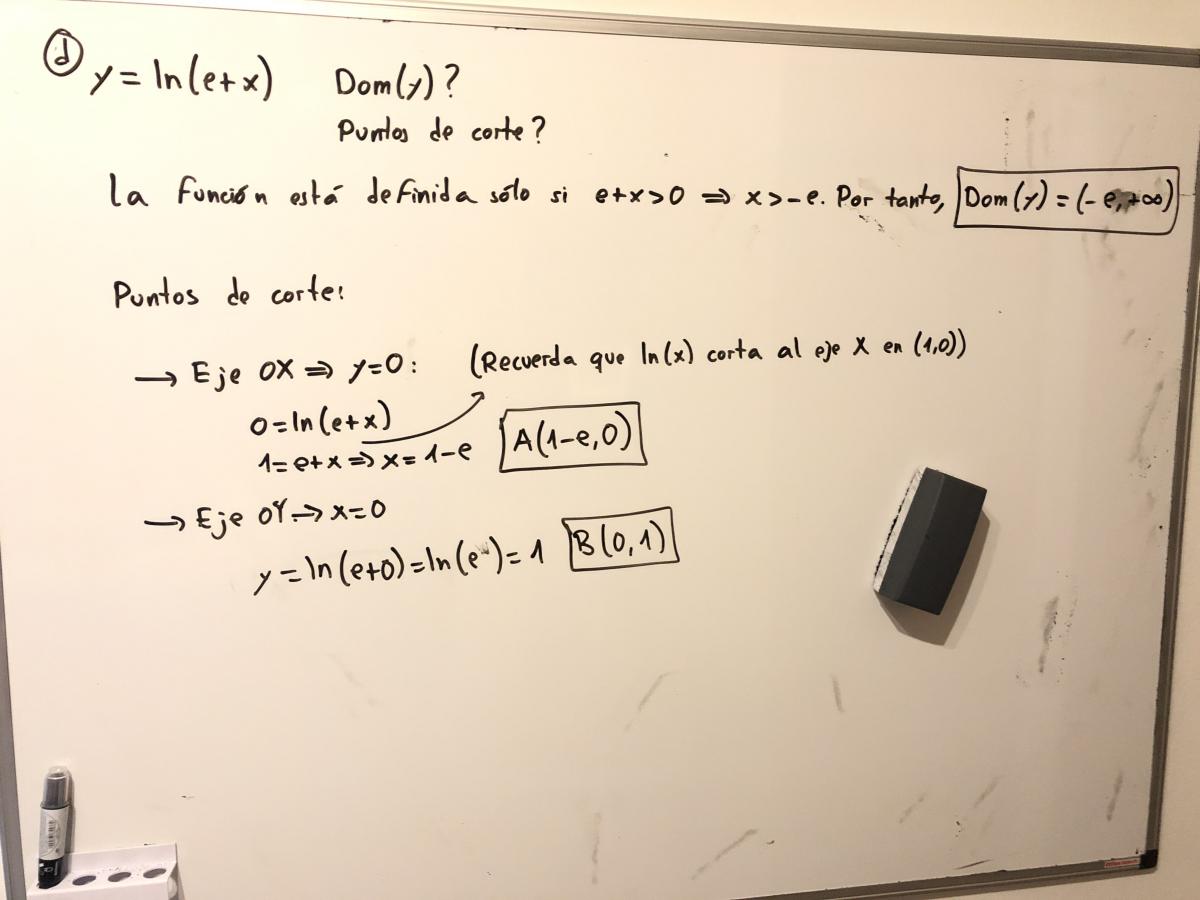 d y = ln(e+x) Dom(y)?
Puntos de corte?
La función está definida sólo si e+x>0 ⇒ x>-e. Por tanto, Dom(y) = (-e,+∞)
Puntos de corte:
→ Eje OX ⇒ y=0: (Recuerda que ln(x) corta al eje X en (1,0))
0=ln(e+x)
1=e+x ⇒ x=1-e A(1-e,0)
→ Eje OY → x=0
y=ln(e+0)=ln(e)=1 B(0,1)